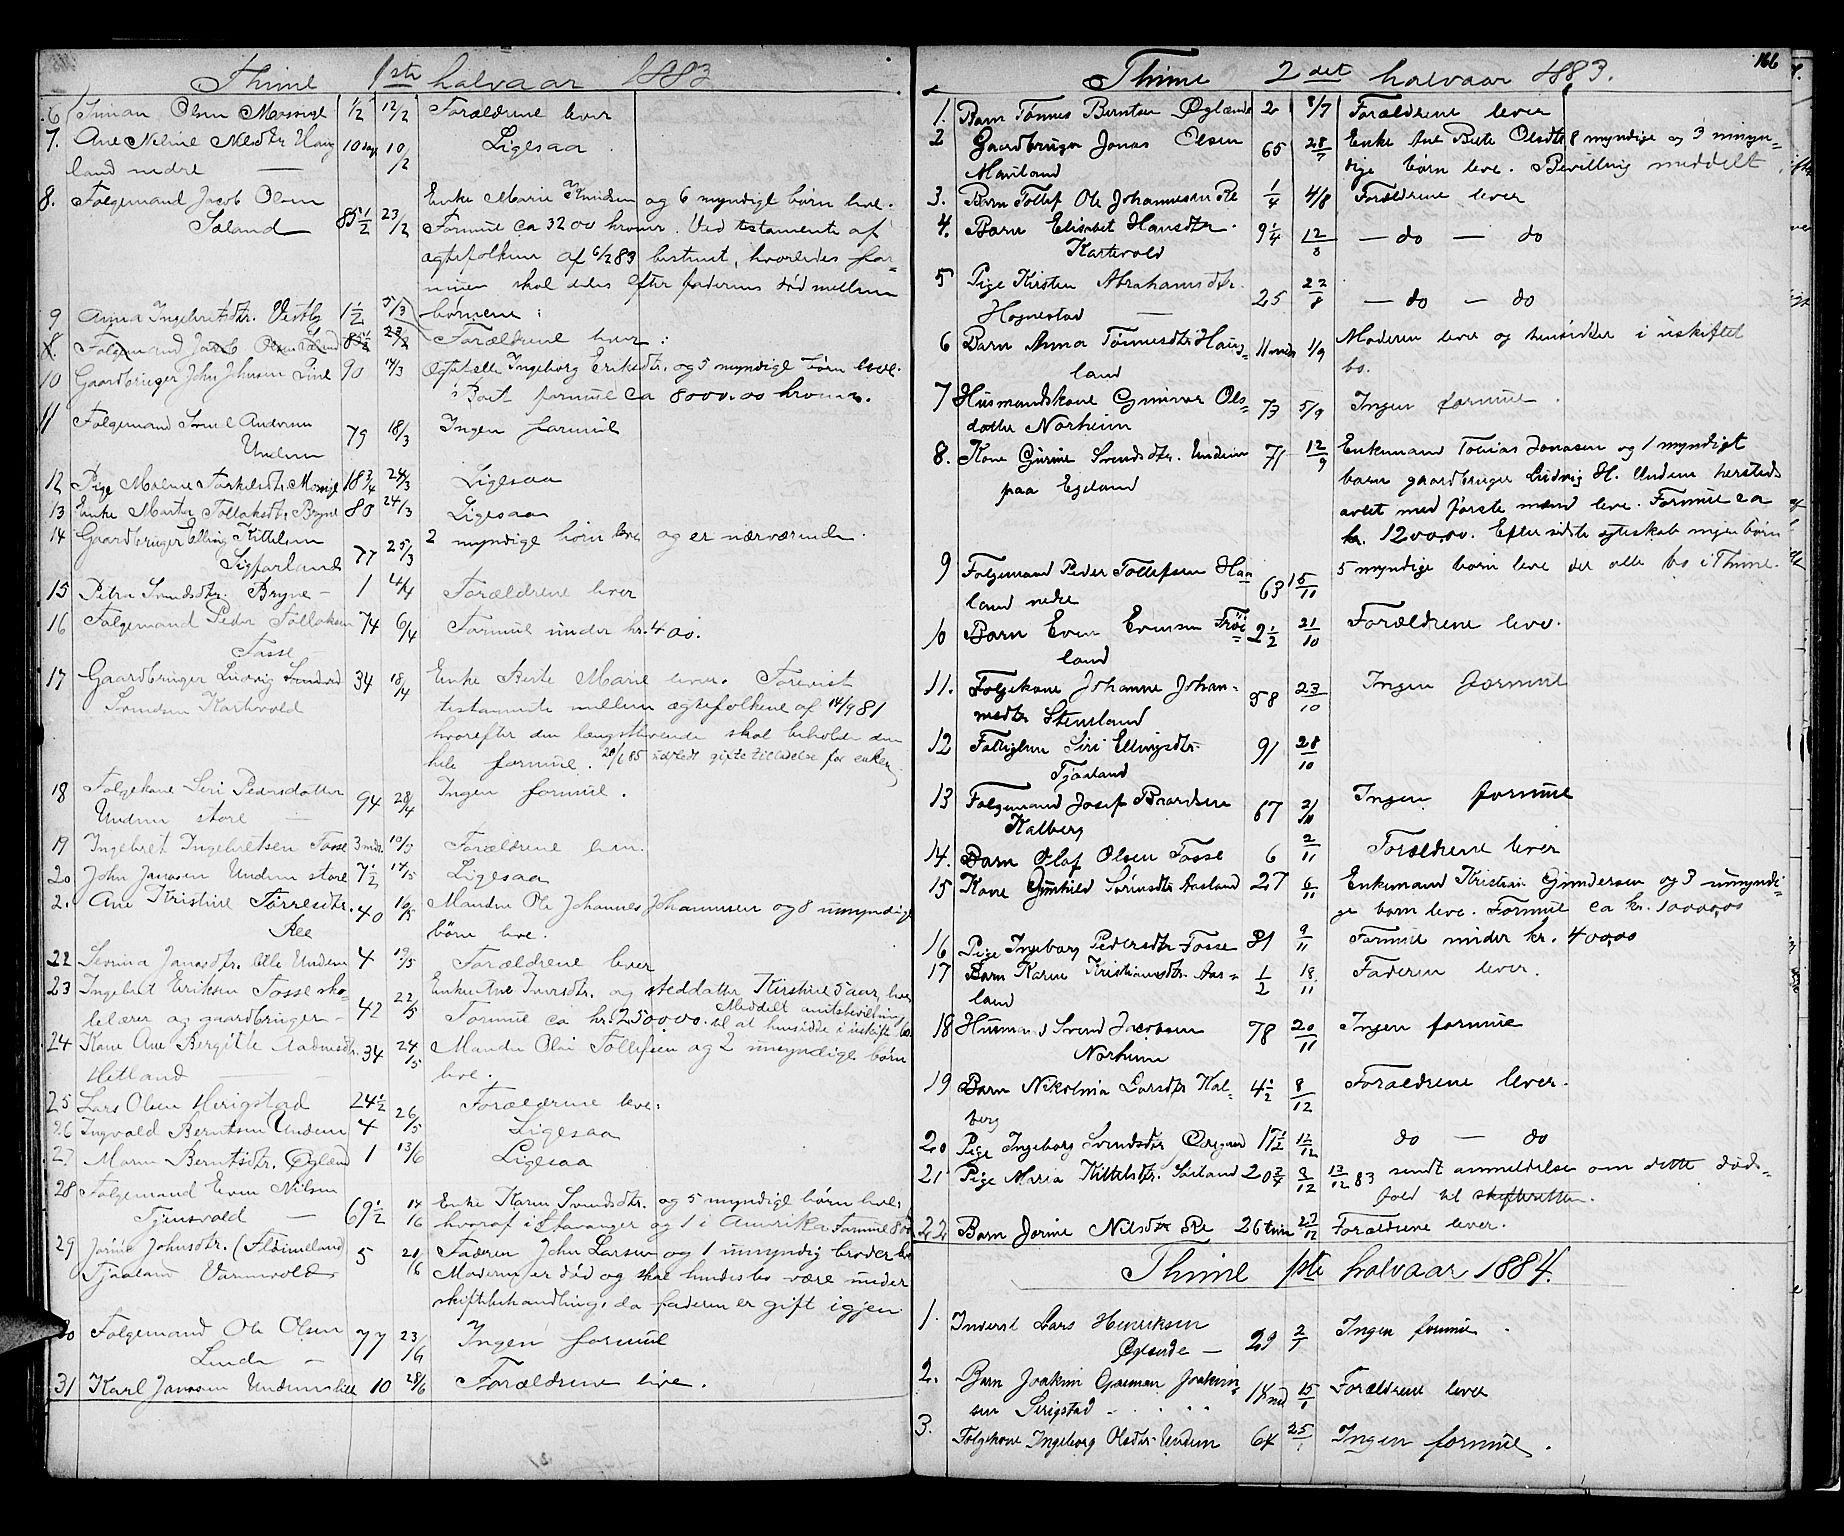 Thime 1ste halvaar 1883
6 Simon Olsen Mossige 1/2 12/2 Forældrene lever
7. Ane Meline Nilsdtr. Haug 10 dage 10/2 Ligesaa
land nedre —
8. Følgemand Jacob Olsen Enke Marie Knudsen og 6 myndige børn leve.
Søland 85 1/2 23/2 Formue ca 3200 kroner. Ved testamente af
ægtefolkene af 6/2 83 bestemt, hvorledes for-
muen skal deles efter faderens død mellem
børnene:
9 Anna Ingebretsdtr. Vestly 1 1/2 5/3 Forældrene lever:
8. Følgemand Jacob Olsen Søland 85 1/2 23/2
10 Gaardbruger John Johnsen Line 90 14/3 Ægtefelle Ingeborg Eriksdtr. og 5 myndige børn leve.
Boet formue ca 8000.00 kroner.
11 Følgemand Svend Andersen 79 18/3 Ingen formue
Undem
12 Pige Malene Torkelsdtr. Mossige 18 3/4 24/3 Ligesaa
13 Enke Marta Tollaksdtr. Bryne 80 24/3 Ligesaa
14 Gaardbruger Elling Kittelsen 2 myndige børn leve og er nærværende.
Sigfarland 77 25/3
15 Petra Svendsdtr. Bryne — 1 4/4 Forældrene lever
16 Følgemand Peder Tollaksen 74 6/4 Formue under kr. 400.
Tosse
17 Gaardbruger Ludvig 34 18/4 Enke Berte Marie lever. Forevist
Svendsen Kartevold testamente mellem ægtefolkene af 14/9 81
hvorefter den længstlevende skal beholde den
hele formue. 20/6 85 giftetilladelse for enken.
18 Følgekone Siri Pedersdatter 94 28/4 Ingen formue.
Undem store —
19 Ingebret Ingebretsen Tosse 3 mdr. 10/5 Forældrene leve.
20 John Janasen Undem store 7 1/2 14/5 Ligesaa
2. Ane Kristine Torresdtr. 40 16/5 Manden Ole Johannes Johannesen og 8 umyndige
Ree børn leve.
22 Serina Janasdtr. Lille Undem 4 19/5 Forældrene lever
23 Ingebret Eriksen Tosse sko- 42 22/5 Enke Ane Iversdtr. og steddatter Kirstine 5 aar, lever
lelærer og gaardbruger — Formue ca kr. 2500.00. Meddelt amtsbevilling til at hensidde i uskiftet bo.
24 Kone Ane Bergitte Aadnesdtr. 34 24/5 Manden Ole Tollefsen og 2 umyndige børn
Hetland — leve.
25 Lars Olsen Herigstad 24 1/2 Forældrene leve:
26 Ingvald Berntsen Undem 4 26/5 Ligesaa
27 Maren Berntsdtr. Øglænd 1 13/6 Ligesaa
28 Følgemand Even Nilsen
Tjensvold — 69 1/2 14/6 Enke Karen Svendsdtr. og 5 myndige børn leve,
hvoraf i Stavanger og 1 i Amerika. Formue 800
29 Jorine Johnsdtr. (Fløimeland 5 21/6 Faderen John Larsen og 1 umyndig broder leve
Tjaaland Varmevold Moderen er død og skal hendes bo være under
skiftebehandling, da faderen er gift igjen.
30 Følgemand Ole Olsen 77 23/6 Ingen formue
Lende —
31 Karl Janasen Undem lille 10 28/6 Forældrene leve.
166
Thime 2det halvaar 1883.
1. Barn Tønnes Berntsen Øglænd 2 8/7 Forældrene lever
2 Gaardbruger Jonas Olsen 65 28/7 Enke Ane Berte Olsdtr. 8 myndige og 3 umyn-
Hauland dige børn leve. Bevilling meddelt
3. Barn Tollef Ole Johannesen Re 1/4 4/8 Forældrene lever
4. Barn Elisabet Hansdtr. 9 1/4 12/8 — do — do
Kartevold
5 Pige Kirsten Abrahamsdtr. 25 22/8 — do — do
Hognestad —
6 Barn Anna Tønnesdtr. Haug- 11 mdr 1/9 Moderen lever og hensidder i uskiftet
land bo.
7 Husmandskone Gunvor Ols- 73 5/9 Ingen formue.
datter Norheim
8. Kone Gurine Svendsdtr. Undem 71 12/9 Enkemand Tobias Jonasen og 1 myndigt
paa Egeland barn gaardbruger Ludvig H. Undem hersteds
avlet med første mand leve. Formue ca
kr. 1200.00. Efter sidste ægteskab ingen børn
9 Følgemand Peder Tollefsen Hau 63 15/11 5 myndige børn leve der alle bo i Thime.
land nedre
10 Barn Even Evensen Frøi 2 1/2 21/10 Forældrene leve.
land
11. Følgekone Johanne Johan- 58 23/10 Ingen formue
nesdtr. Stensland
12 Fattiglem Siri Ellingsdtr. 91 28/10
Tjaaland
13 Følgemand Josef Braadsen 67 21/10 Ingen formue
Kalberg
14. Barn Olaf Olsen Tosse 6 2/11 Forældrene lever
15 Kone Gunhild Sørensdtr. Aasland 27 6/11 Enkemand Kristian Gundersen og 3 umyndi-
ge børn leve. Formue ca kr. 1000,00
16 Pige Ingeborg Pedersdtr. Tosse 81 9/11 Formue under kr. 400,00
17 Barn Karen Kristiansdtr. Aas- 1/2 18/11 Faderen lever.
land
18 Husmand Svend Jacobsen 78 20/11 Ingen formue
Norheim
19 Barn Nikolina Larsdtr. Kal- 4 1/2 8/12 Forældrene lever.
berg
20 Pige Ingeborg Svendsdtr. 17 1/2 12/12 do — do
21 Pige Maria Kittelsdtr. Søiland 20 3/4 9/12 13/12 83 sendt anmeldelse om dette døds-
fald til skifteretten.
22 Barn Jorine Nilsdtr. Re 26 timer 27/12 Forældrene lever.
Thime 1ste halvaar 1884.
1. Inderst Lars Henriksen 29 2/1 Ingen formue.
Øglende —
2. Barn Joakim Joakim- 18 md 15/1 Forældrene lever
sen Serigstad
3. Følgekone Ingeborg Olsdtr. Undem 64 25/1 Ingen formue.